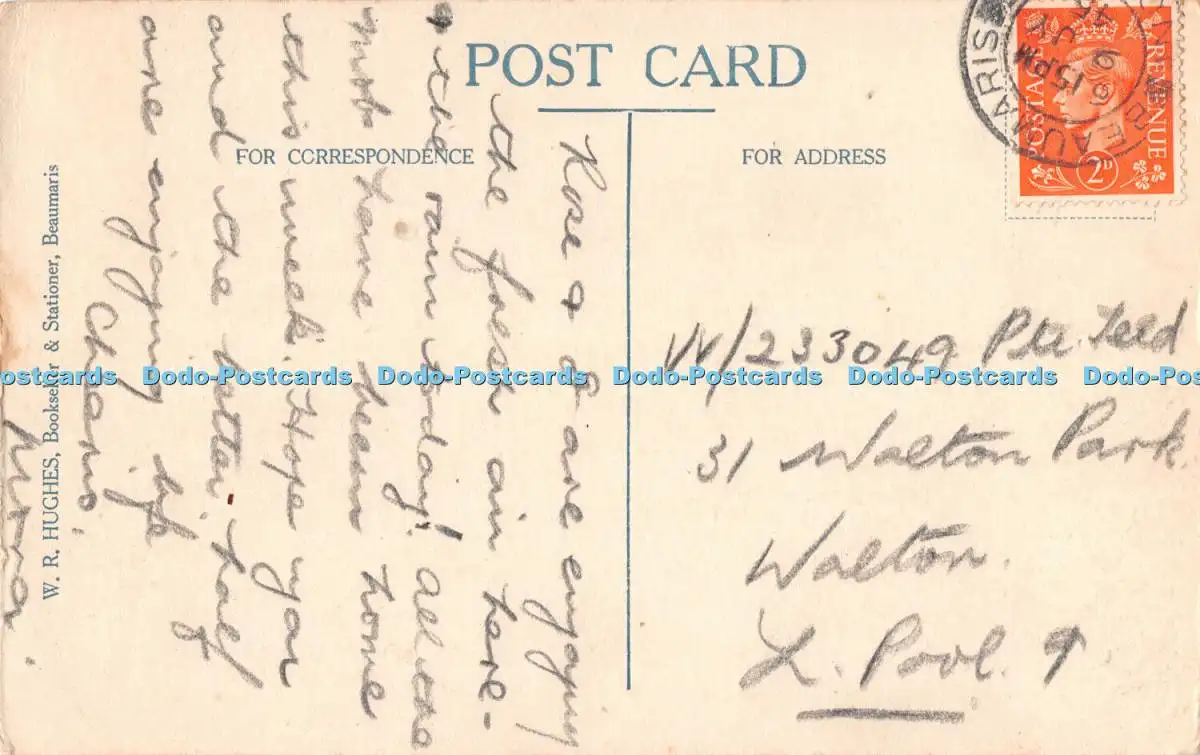 POST CARD
FOR CORRESPONDENCE
FOR ADDRESS
POSTAGE
REVENUE
2D
BEAUMARIS
6 15 PM
9 JY
45
W/233049 Pte. Teld
31 Walton Park
Walton.
L. Pool. 9
Rose & I are enjoying
the fresh air here -
& the rain today! All the
mob have been home
this week. Hope you
and the better half
are enjoying life
Cheerio
W. R. HUGHES, Bookseller & Stationer, Beaumaris
Dodo-Postcards Dodo-Postcards Dodo-Postcards Dodo-Postcards Dodo-Postcards Dodo-Postcards